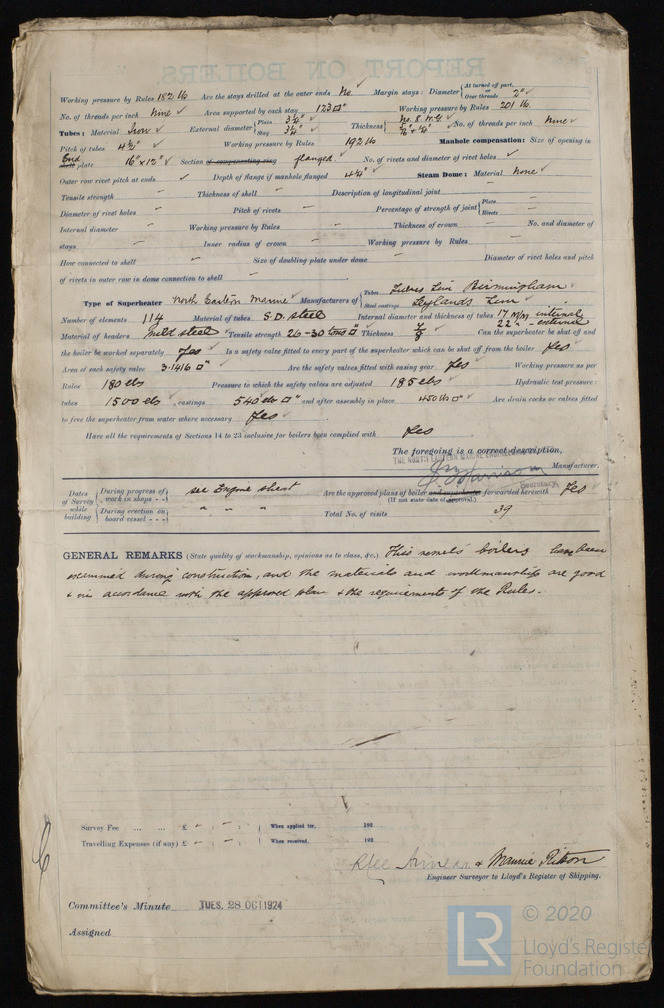 REPORT ON BOILERS.
Working pressure by Rules 182 lb Are the stays drilled at the outer ends No Margin stays: Diameter { At turned off part, or Over threads 2"
No. of threads per inch Nine Area supported by each stay 123 □" Working pressure by Rules 201 lb.
Tubes: Material Iron External diameter { Plain 3¼" Stay 3¼" Thickness { No. 8 W.G. No. of threads per inch Nine
Pitch of tubes 4½" Working pressure by Rules 192 lb Manhole compensation: Size of opening in
End plate 16" x 12" Section of compensating ring flanged. No. of rivets and diameter of rivet holes
Outer row rivet pitch at ends Depth of flange if manhole flanged Steam Dome: Material None
Tensile strength Thickness of shell Description of longitudinal joint
Diameter of rivet holes Pitch of rivets Percentage of strength of joint { Plate Rivets
Internal diameter Working pressure by Rules Thickness of crown No. and diameter of
stays Inner radius of crown Working pressure by Rules
How connected to shell Size of doubling plate under dome Diameter of rivet holes and pitch
of rivets in outer row in dome connection to shell
Type of Superheater North Eastern Marine Manufacturers of { Tubes Tubes Lim Birmingham Steel castings Leylands Lim
Number of elements 114 Material of tubes S.D. steel Internal diameter and thickness of tubes 17 m/m internal 22 " external
Material of headers Mild steel Tensile strength 26-30 tons □" Thickness Can the superheater be shut off and
the boiler be worked separately Yes Is a safety valve fitted to every part of the superheater which can be shut off from the boiler Yes
Area of each safety valve 3.1416 □" Are the safety valves fitted with easing gear Yes Working pressure as per
Rules 180 lbs Pressure to which the safety valves are adjusted 185 lbs Hydraulic test pressure:
tubes 1500 lbs, castings 540 lbs □" and after assembly in place 450 lbs □" Are drain cocks or valves fitted
to free the superheater from water where necessary Yes
Have all the requirements of Sections 14 to 23 inclusive for boilers been complied with Yes
The foregoing is a correct description,
THE NORTH EASTERN MARINE ENGINEERING
Harrison Manufacturer.
Secretary
Dates of Survey while building { During progress of work in shops - - see Engine sheet Are the approved plans of boiler and superheater forwarded herewith Yes
(If not state date of approval.)
During erection on board vessel - - - " " " Total No. of visits 39
GENERAL REMARKS (State quality of workmanship, opinions as to class, &c.) This vessel's boilers have been
examined during construction, and the materials and workmanship are good
& in accordance with the approved plan & the requirements of the Rules.
Survey Fee ... ... £ - - When applied for, 192
Travelling Expenses (if any) £ - - When received, 192
& Maurice
Engineer Surveyor to Lloyd's Register of Shipping.
Committee's Minute TUES. 28 OCT 1924
Assigned
LR © 2020
Lloyd's Register
Foundation